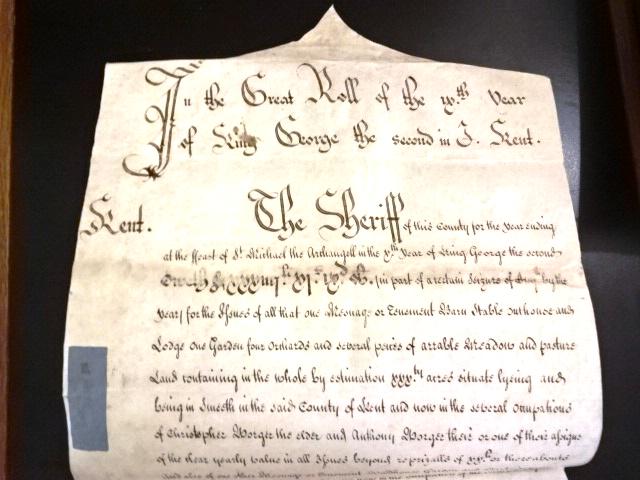 In the Great Roll of the ixth Year
of King George the second in I. Kent.
Kent.
The Sheriff of this County for the Year ending
at the ffeast of St. Michael the Archangell in the xth Year of King George the second
in part of a certain Seizure of by the
Year for the Issues of all that one Messuage or Tenement Barn Stable Outhouse and
Lodge One Garden four Orchards and several peices of arrable Meadow and pasture
Land containing in the whole by estimation xxxty acres situate lyeing and
being in Smeeth in the said County of Kent and now in the several occupations
of Christopher Worger the elder and Anthony Worger their or one of their assigns
of the clear yearly value in all Issues beyond reprizalls of or thereabouts
and also of one other Messuage or Tenement